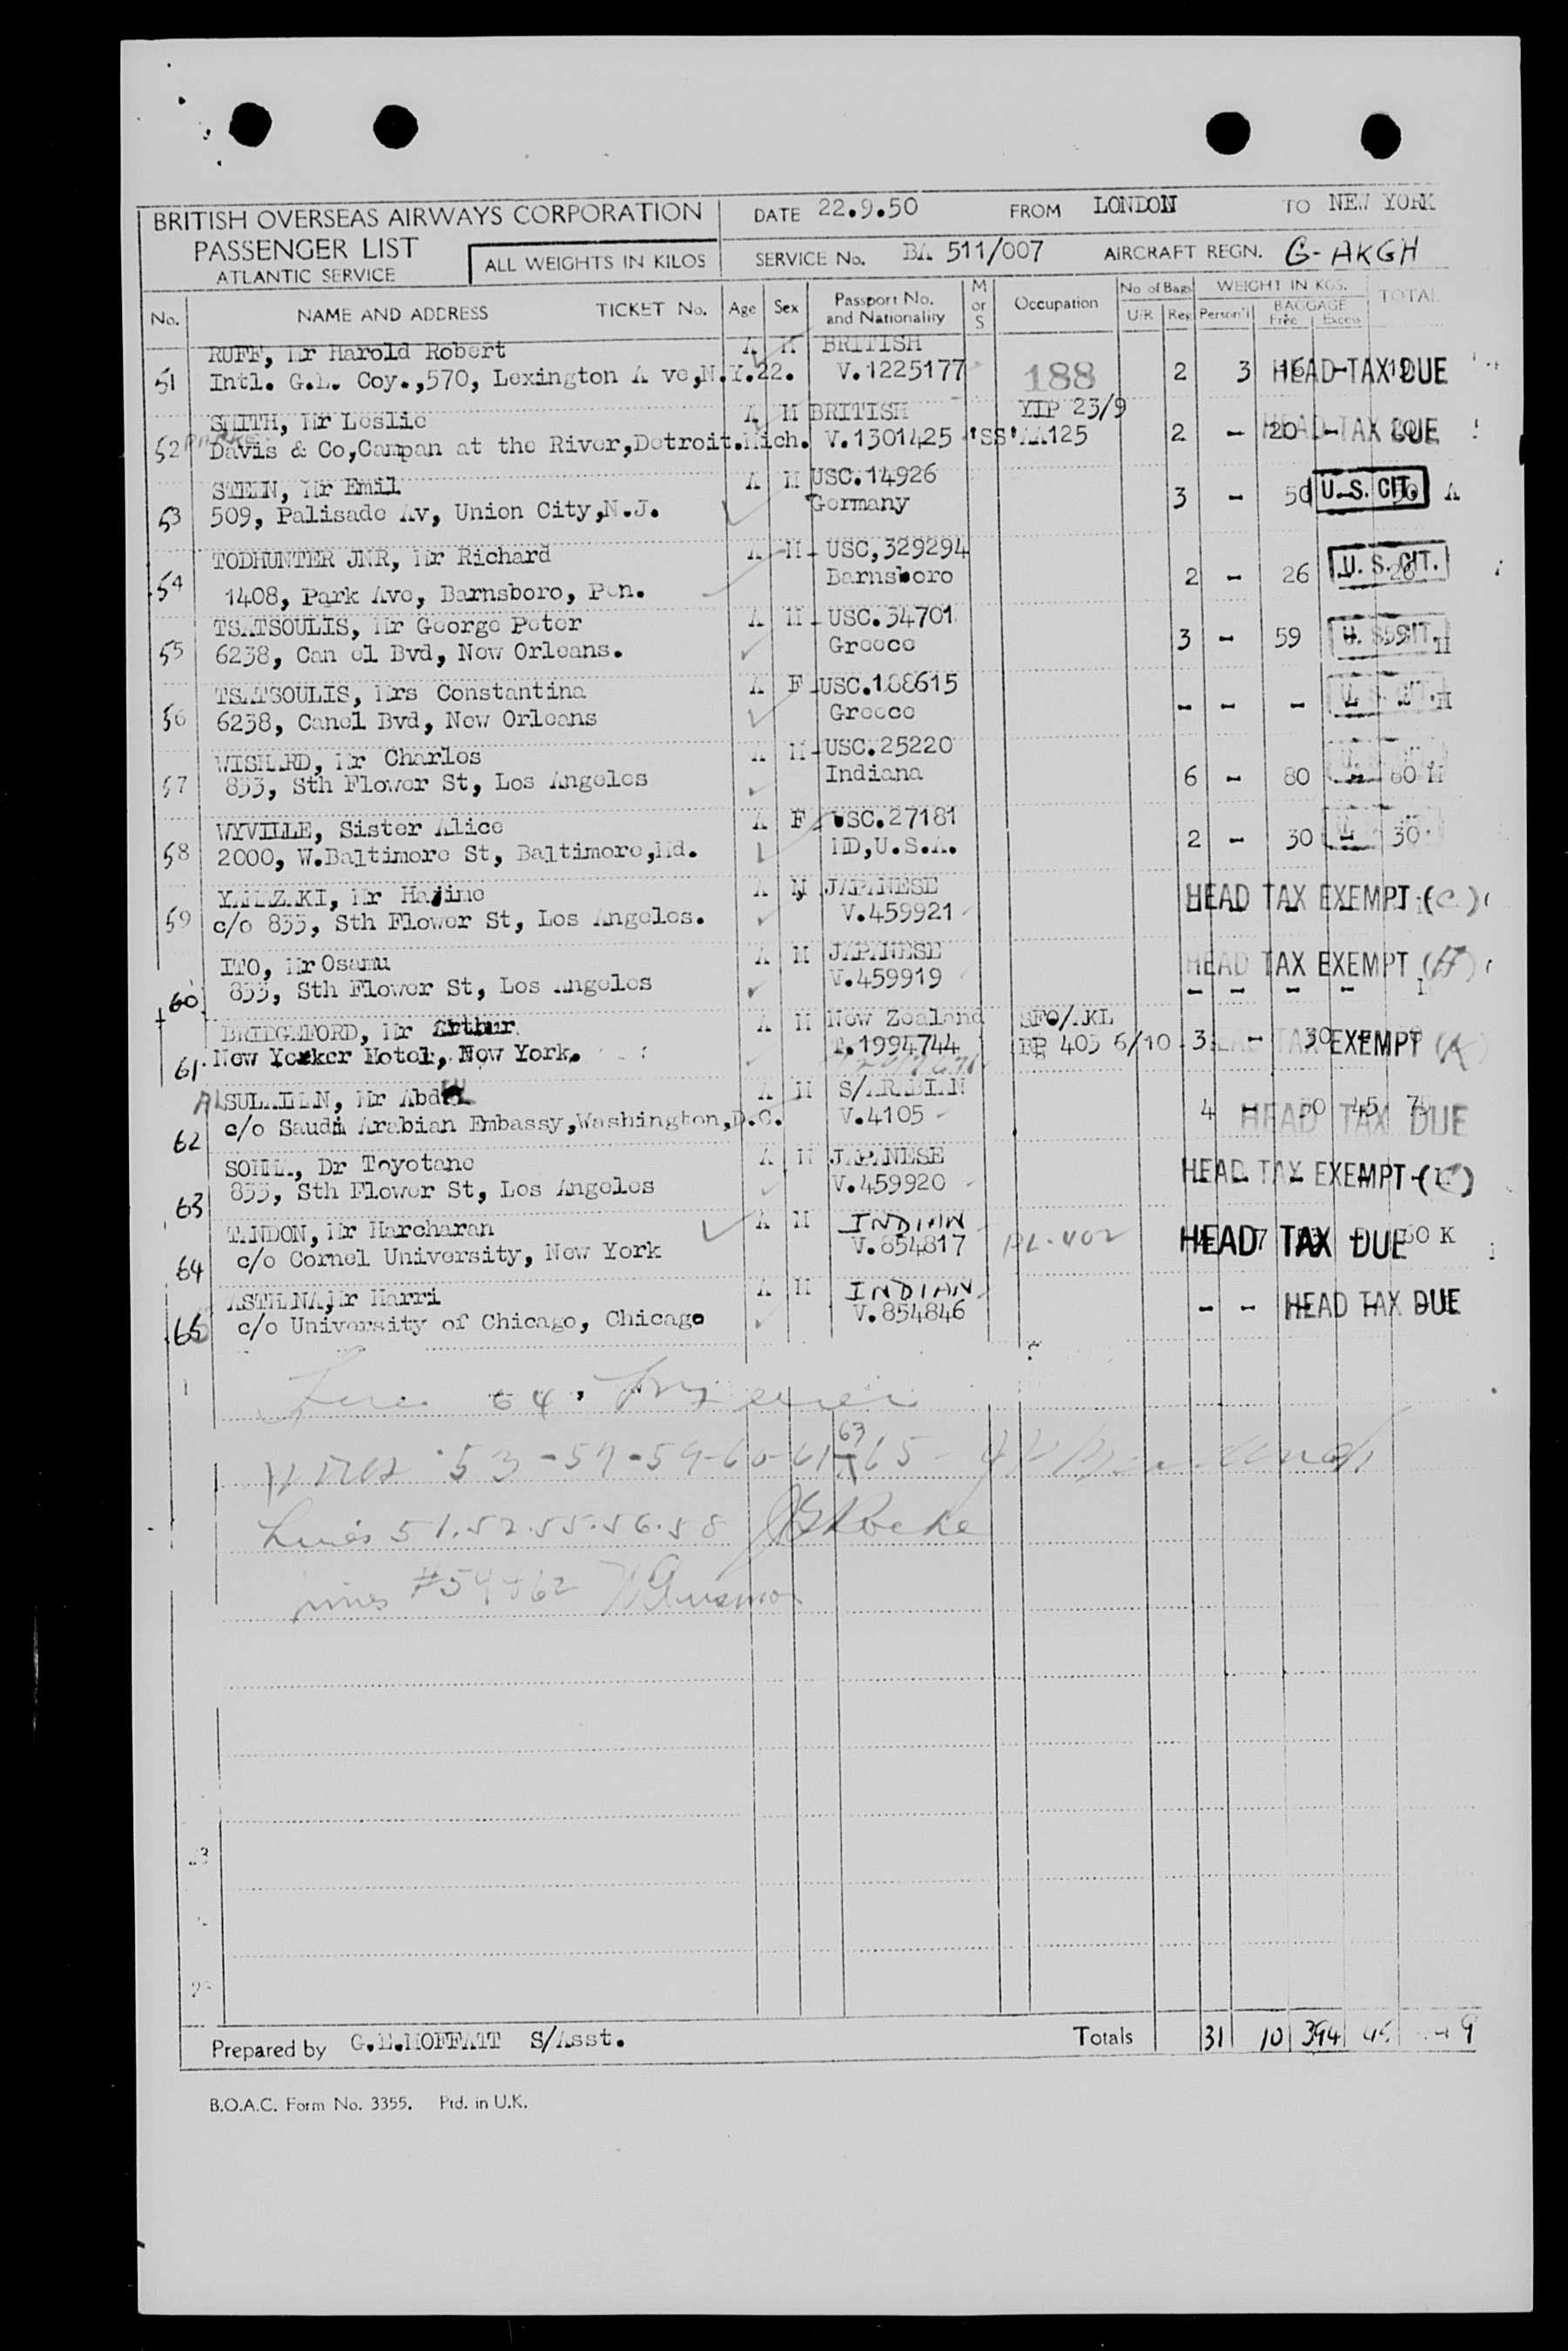 BRITISH OVERSEAS AIRWAYS CORPORATION DATE 22.9.50 FROM LONDON TO NEW YORK
PASSENGER LIST
ATLANTIC SERVICE ALL WEIGHTS IN KILOS SERVICE No. BA 511/007 AIRCRAFT REGN. G-AKGH
No. NAME AND ADDRESS TICKET No. Age Sex Passport No. and Nationality M or S Occupation No of Bags U/R Reg WEIGHT IN KGS. Person'l BAGGAGE Free Excess TOTAL
RUFF, Mr Harold Robert A M BRITISH
51 Intl. G.E. Coy.,570, Lexington A ve,N.Y.22. V.1225177 188 2 3 16 - 19 HEAD TAX DUE
SMITH, Mr Leslie A M BRITISH YIP 23/9
52 Parke Davis & Co,Campan at the River,Detroit.Mich. V.1301425 'SS'AA125 2 - 20 - 20 HEAD TAX DUE
STEIN, Mr Emil A M USC.14926
53 509, Palisade Av, Union City,N.J. Germany 3 - 50 - 50 U.S. CIT. A
TODHUNTER JNR, Mr Richard A M USC,329294
54 1408, Park Ave, Barnsboro, Pen. Barnsboro 2 - 26 - 26 U.S. CIT.
TSATSOULIS, Mr George Peter A M USC.34701
55 6238, Can el Bvd, New Orleans. Greece 3 - 59 - 59 U.S. CIT. H
TSATSOULIS, Mrs Constantina A F USC.188615
56 6238, Canel Bvd, New Orleans Greece - - - - - U.S. CIT. H
WISHARD, Mr Charles A M USC.25220
57 833, Sth Flower St, Los Angeles Indiana 6 - 80 - 80 H
WYVILLE, Sister Alice A F USC.27181
58 2000, W.Baltimore St, Baltimore,Md. MD,U.S.A. 2 - 30 - 30
YAMAZAKI, Mr Hajime A M JAPANESE
59 c/o 833, Sth Flower St, Los Angeles. V.459921 HEAD TAX EXEMPT (C)
ITO, Mr Osamu A M JAPANESE
60 833, Sth Flower St, Los Angeles V.459919 HEAD TAX EXEMPT (H)
BRIDGEFORD, Mr Arthur A M New Zealand SFO/AKL
61 New Yorker Hotel, New York. T.1994744 BP 403 6/10 3 - 30 HEAD TAX EXEMPT
AL SULAIMAN, Mr Abdul A M S/ARABIAN
62 c/o Saudi Arabian Embassy,Washington,D.C. V.4105 4 - 30 45 75 HEAD TAX DUE
SOMMA, Dr Toyotane A M JAPANESE
63 833, Sth Flower St, Los Angeles V.459920 HEAD TAX EXEMPT
TANDON, Mr Harcharan A M INDIAN
64 c/o Cornel University, New York V.854817 PL-402 7 60 K HEAD TAX DUE
ASTHANA,Mr Harri A M INDIAN
65 c/o University of Chicago, Chicago V.854846 - - HEAD TAX DUE
Line 64.
Lines 53-57-59-60-61-63-65
Lines 51.52.55.56.58 Roche
Lines #54 & 62
Prepared by G.E.MOFFATT S/Asst. Totals 31 10 394 45
B.O.A.C. Form No. 3355. Ptd. in U.K.